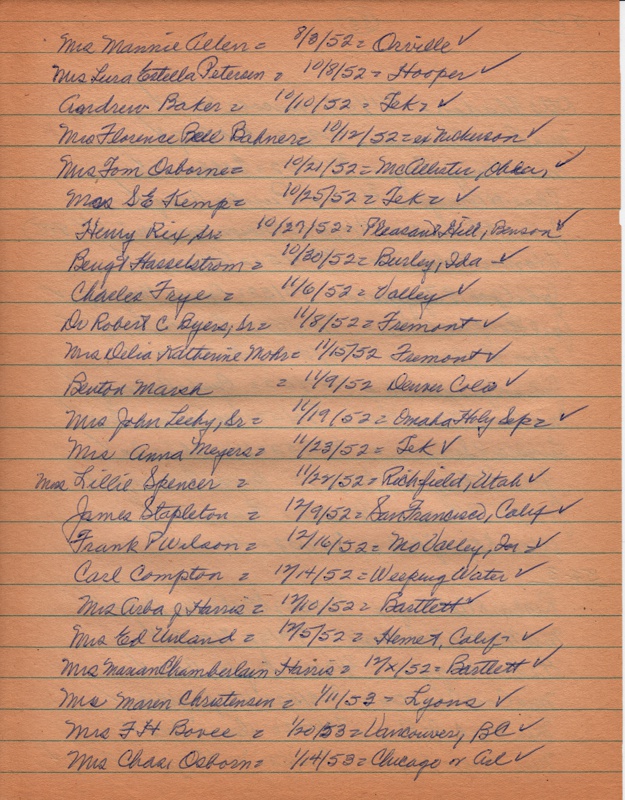 Mrs Mannie Allen = 8/8/52 = Orville ✓
Mrs Lura Estella Petersen = 10/8/52 = Hooper ✓
Andrew Baker = 10/10/52 = Tek = ✓
Mrs Florence Bell Bahner = 10/12/52 = ex Nickerson ✓
Mrs Tom Osborne = 10/21/52 = McAllister, Okla, ✓
Mrs S E Kemp = 10/25/52 = Tek = ✓
Henry Rix, Sr = 10/27/52 = Pleasant Hill, Benson ✓
Bengt Hasselstrom = 10/30/52 = Burley, Ida - ✓
Charles Frye = 11/6/52 = Valley ✓
Dr Robert C Byers, Sr = 11/8/52 = Fremont ✓
Mrs Delia Katherine Mohr = 11/15/52 Fremont ✓
Benton Marsh = 11/9/52 Denver Colo ✓
Mrs John Lecky, Sr = 11/19/52 = Omaha Holy Sep = ✓
Mrs Anna Meyers = 11/23/52 = Tek ✓
Mrs Lillie Spencer = 11/22/52 = Richfield, Utah ✓
James Stapleton = 12/9/52 = San Francisco, Calif ✓
Frank P Wilson = 12/16/52 = Mo Valley, Ia = ✓
Carl Compton = 12/14/52 = Weeping Water ✓
Mrs Arba J Harris = 12/10/52 = Bartlett ✓
Mrs Ed Unland = 12/5/52 = Hemet, Calif - ✓
Mrs Marian Chamberlain Harris = 12/x/52 = Bartlett ✓
Mrs Maren Christensen = 1/11/53 = Lyons ✓
Mrs F H Bovee = 1/20/53 = Vancouver, BC ✓
Mrs Chas. Osborn = 1/14/53 = Chicago or ✓